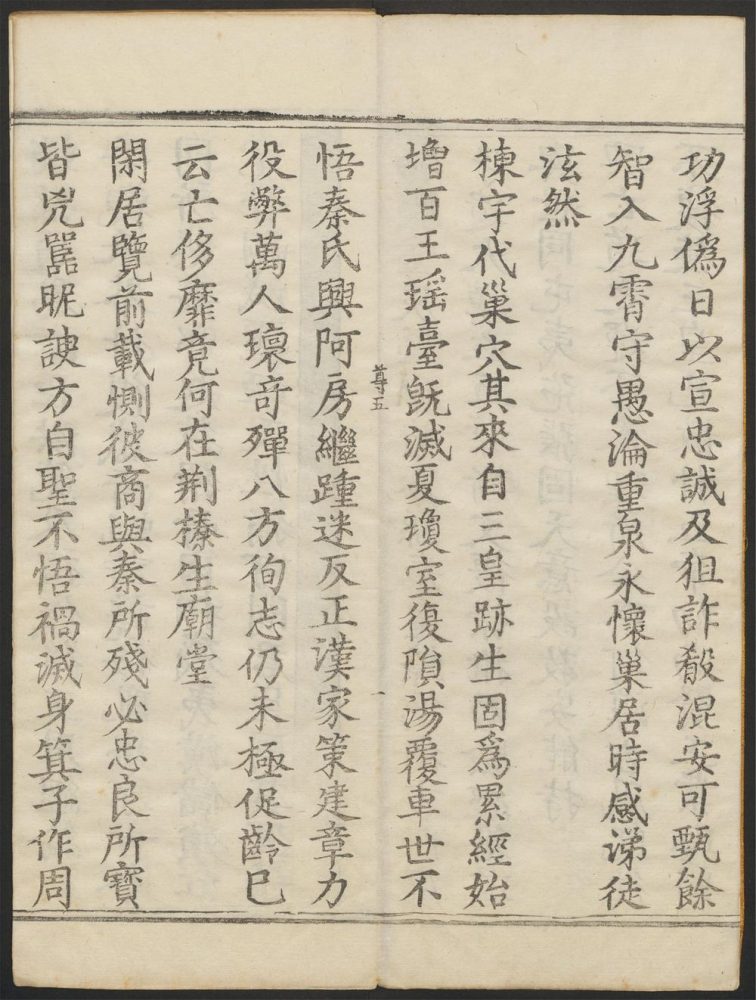 功浮僞日以宣忠誠及狙詐殽混安可甄餘
智入九霄守愚淪重泉永懷巢居時感涕徒
泫然
棟宇代巢穴其來自三皇跡生固爲累經始
增百王瑶臺旣滅夏瓊室復隕湯覆車世不
尊五
悟秦氏興阿房繼踵迷反正漢家策建章力
役弊萬人瓌奇殫八方徇志仍未極促齡已
云亡侈靡竟何在荆榛生廟堂
閑居覽前載惻彼商與秦所殘必忠良所寶
皆兇嚚昵諛方自聖不悟禍滅身箕子作周